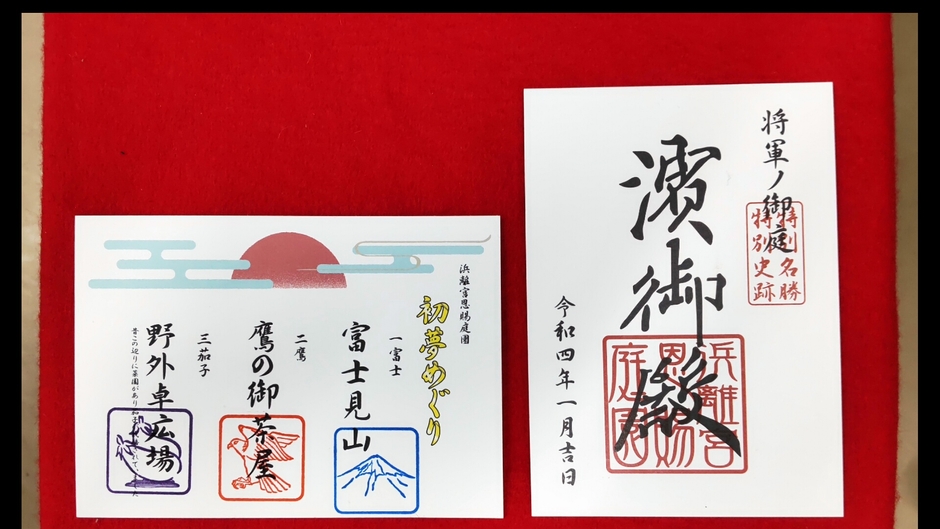 浜離宮恩賜庭園
初夢めぐり
一富士
富士見山
二鷹
鷹の御茶屋
三茄子
野外卓広場
将軍ノ御庭
特別名勝
特別史跡
濱御殿
浜離宮
恩賜
庭園
令和四年一月吉日